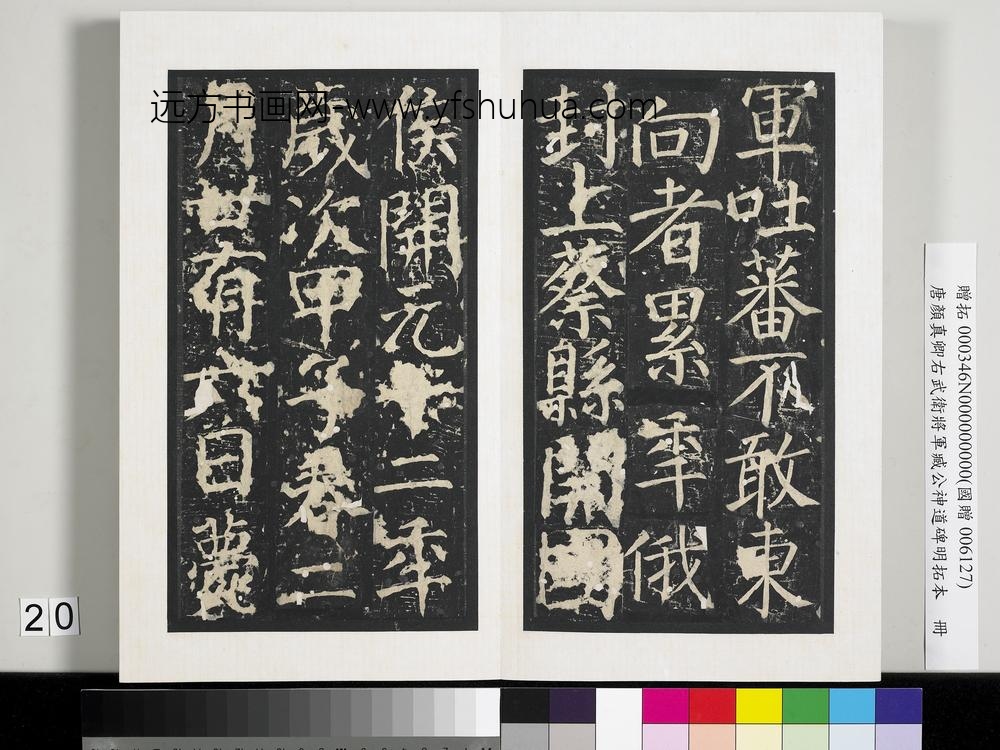 軍吐蕃不敢東
向者累年俄
封上蔡縣開國
侯開元十二年
歲次甲子春二
月廿有六日薨
远方书画网-www.yfshuhua.com
贈拓 000346N000000000(國贈 006127)
唐顏真卿右武衛將軍臧公神道碑明拓本 冊
20